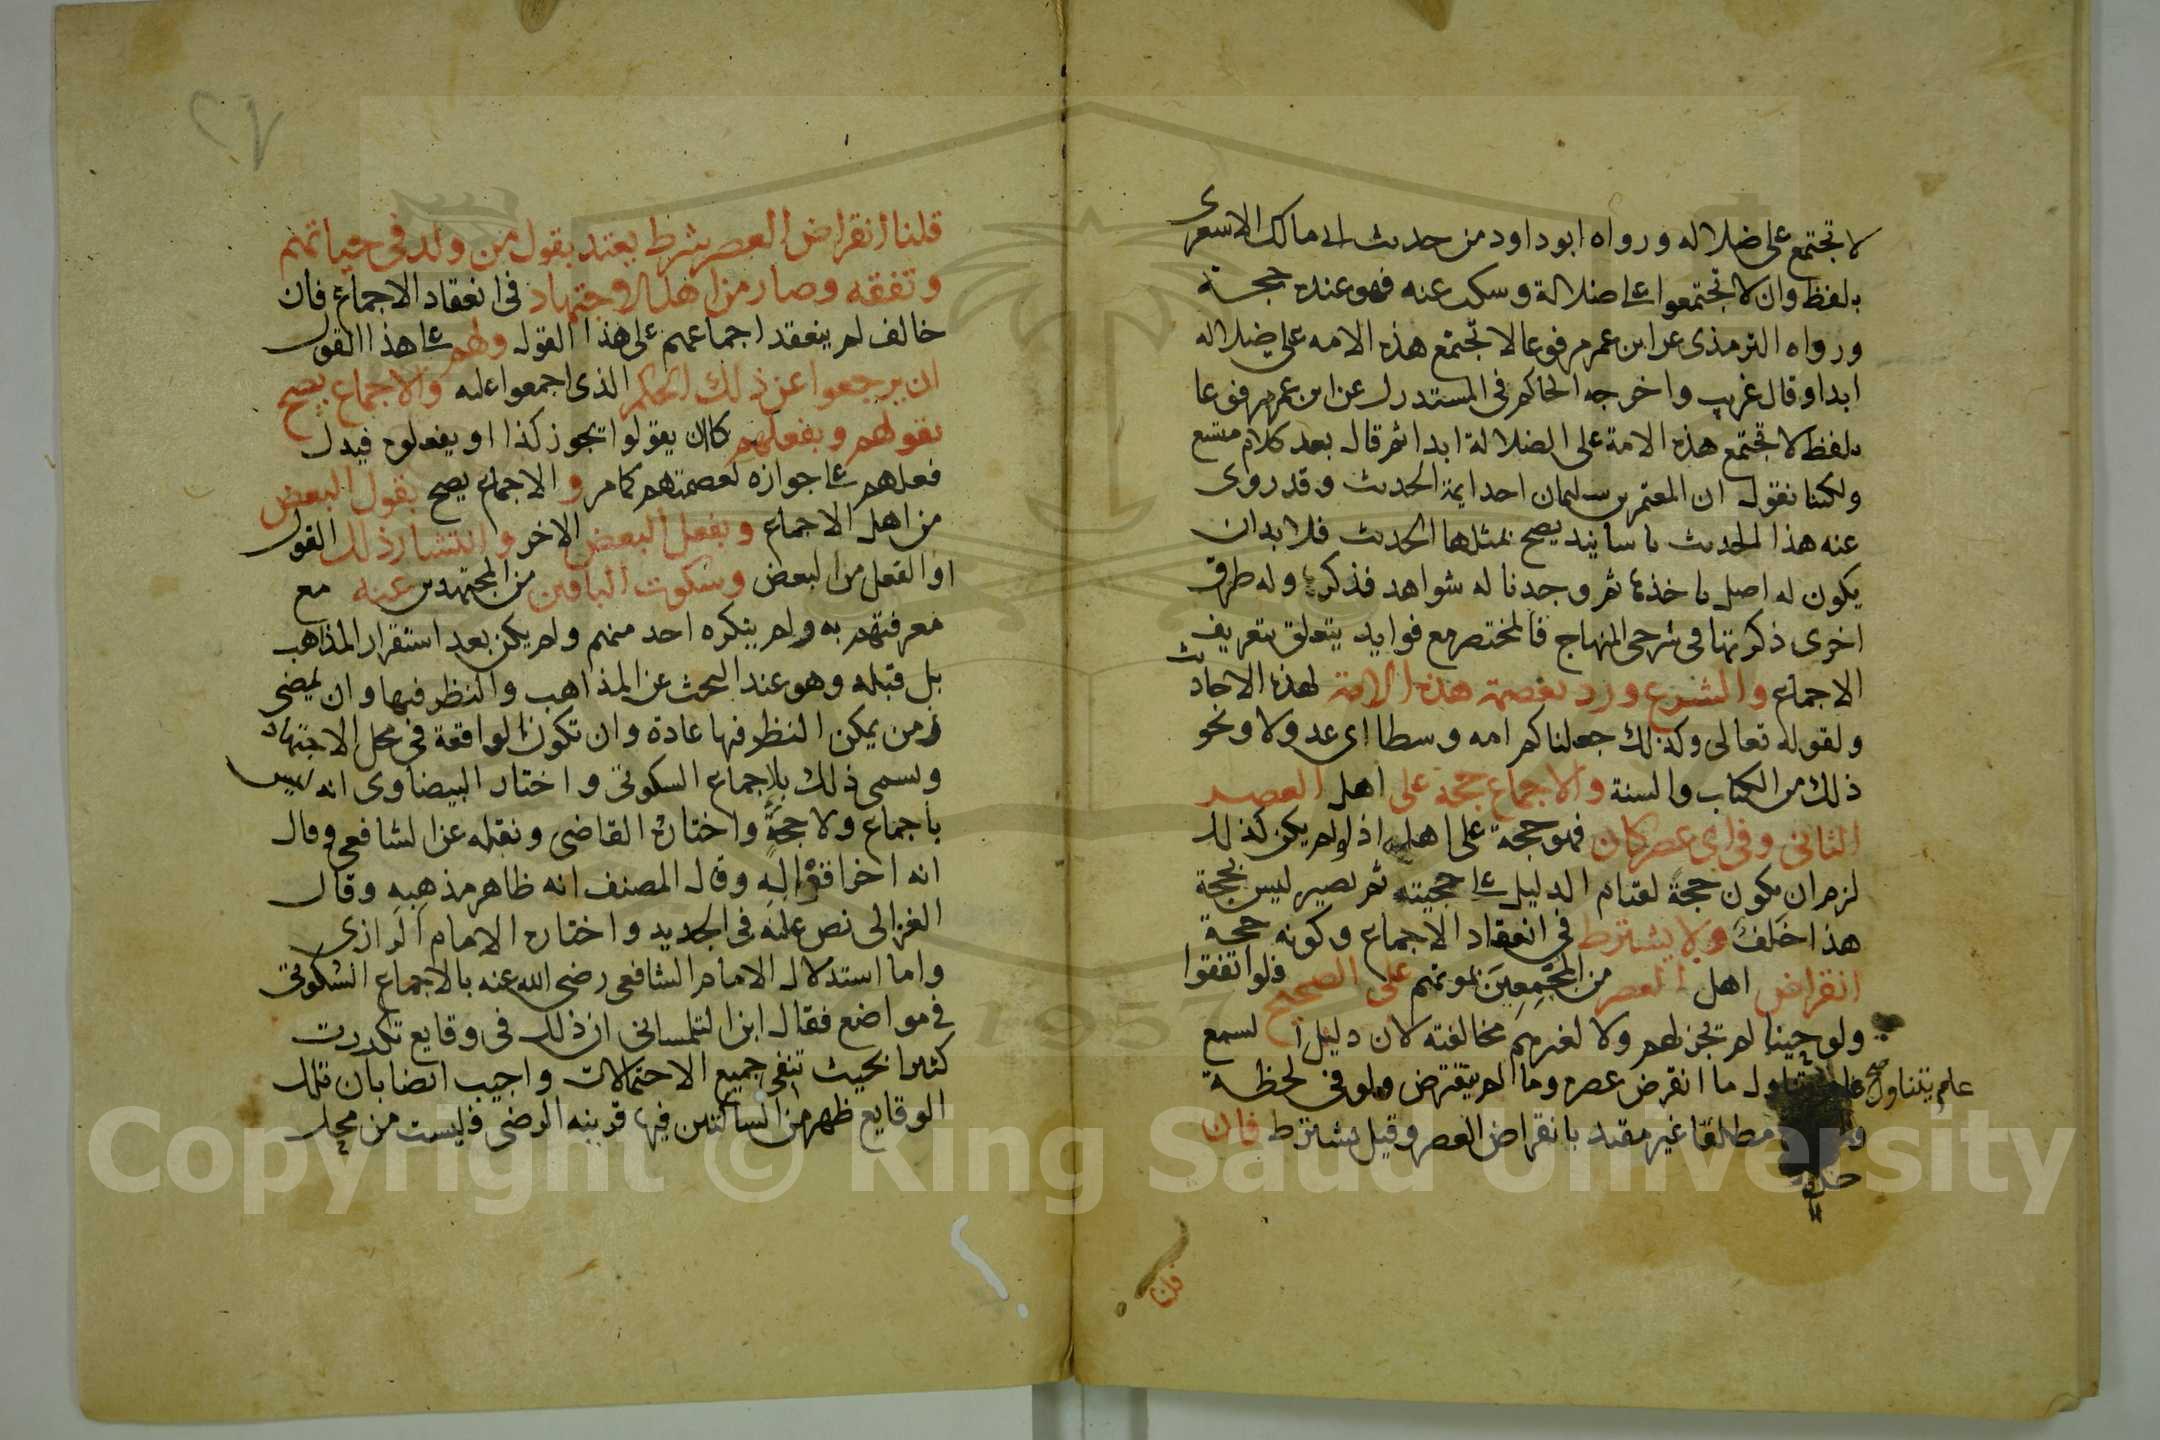 لا تجتمع على ضلاله ورواه ابو داود من حديث ابي مالك الاشعرى
بلفظ وان لا تجتمعوا على ضلالة وسكت عنه فهو عنده حجة
ورواه الترمذى عن ابن عمر مرفوعا لا تجتمع هذه الامه على ضلاله
ابدا وقال غريب واخرجه الحاكم فى المستدرك عن ابن عمر مرفوعا
بلفظ لا تجتمع هذه الامة على الضلالة ابدا ثم قال بعد كلام متسع
ولكنا نقول ان المعتمر بن سليمان احد ايمة الحديث وقد روى
عنه هذا الحديث باسانيد يصح بمثلها الحديث فلا بد ان
يكون له اصل باخذها ثم وجدنا له شواهد فذكرها وله طرق
اخرى ذكرتها فى شرحى المنهاج فالمختصر مع فوايد يتعلق بتعريف
الاجماع والشرع ورد بعصمة هذه الامة لهذه الاحاديث
ولقوله تعالى وكذلك جعلناكم امه وسطا اى عدولا ونحو
ذلك من الكتاب والسنة والاجماع حجة على اهل العصر
الثانى وفى اى عصر كان فهو حجة على اهله اذ لو لم يكن كذلك
لزم ان يكون حجة لقيام الدليل على حجيته ثم يصير ليس بحجة
هذا خلف ولا يشترط فى انعقاد الاجماع وكونه حجة
انقراض اهل العصر من المجمعين بموتهم على الصحيح فلو اتفقوا
ولو حينا لم تجز لهم ولا لغيرهم مخالفته لان دليل السمع
علم يتناول صح ما انقرض عصره وما لم ينقرض ولو فى لحظة
مطلقا غير مقيد بانقراض العصر وقيل يشترط فان
فان
٢٧
قلنا انقراض العصر شرط يعتد بقول من ولد فى حياتهم
وتفقه وصار من اهل الاجتهاد فى انعقاد الاجماع فان
خالف لم ينعقد اجماعهم على هذا القول ولهم على هذا القول
ان يرجعوا عن ذلك الحكم الذى اجمعوا عليه والاجماع يصح
بقولهم وبفعلهم كان يقولوا يجوز كذا او يفعلوه فيدل
فعلهم على جوازه لعصمتهم كما مر والاجماع يصح بقول البعض
من اهل الاجماع وبفعل البعض الاخر وانتشار ذلك القول
او الفعل من البعض وسكوت الباقين من المجتهدين عنه مع
معرفتهم به ولم ينكره احد منهم ولم يكن بعد استقرار المذاهب
بل قبله وهو عند البحث عن المذاهب والنظر فيها وان يمضى
زمن يمكن النظر فيها عادة وان تكون الواقعة فى محل الاجتهاد
ويسمى ذلك بالاجماع السكوتى واختار البيضاوى انه ليس
باجماع ولا حجة واختاره القاضى ونقله عن الشافعى وقال
انه اخر اقواله وقال المصنف انه ظاهر مذهبه وقال
الغزالى نص عليه فى الجديد واختاره الامام الرازى
واما استدلال الامام الشافعى رضى الله عنه بالاجماع السكوتى
فى مواضع فقال ابن التلمسانى ان ذلك فى وقايع تكررت
كثيرا بحيث تنفى جميع الاحتمالات واجيب ايضا بان تلك
الوقايع ظهر من الساكتين فيها قرينه الرضى فليست من محل
Copyright © King Saud University
1957